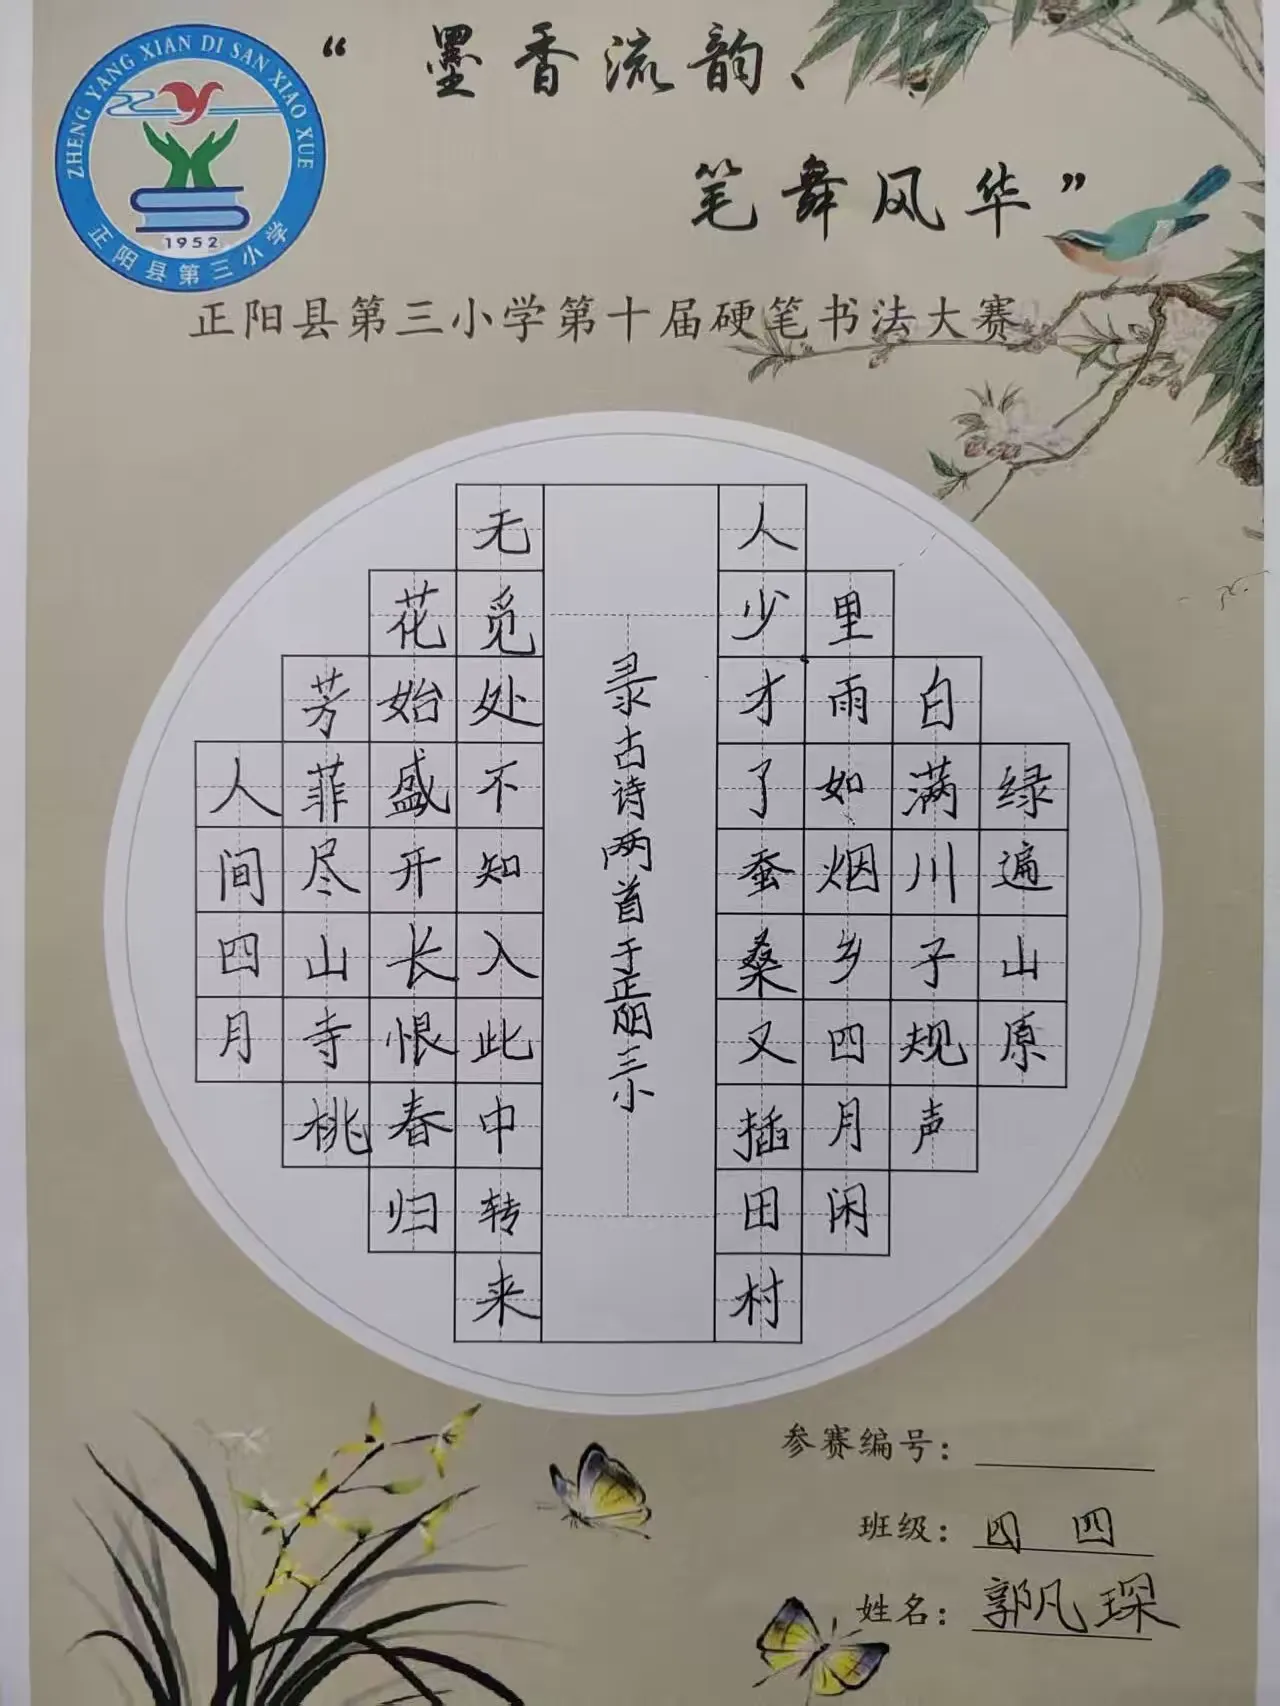 ZHENG YANG XIAN DI SAN XIAO XUE
1952
正阳县第三小学
“墨香流韵、
笔舞风华”
正阳县第三小学第十届硬笔书法大赛
绿遍山原
白满川子规声
里雨如烟乡四月闲
人少才了蚕桑又插田村
录古诗两首于正阳三小
无觅处不知入此中转来
花始盛开长恨春归
芳菲尽山寺桃
人间四月
参赛编号：
班级：四 四
姓名：郭凡琛